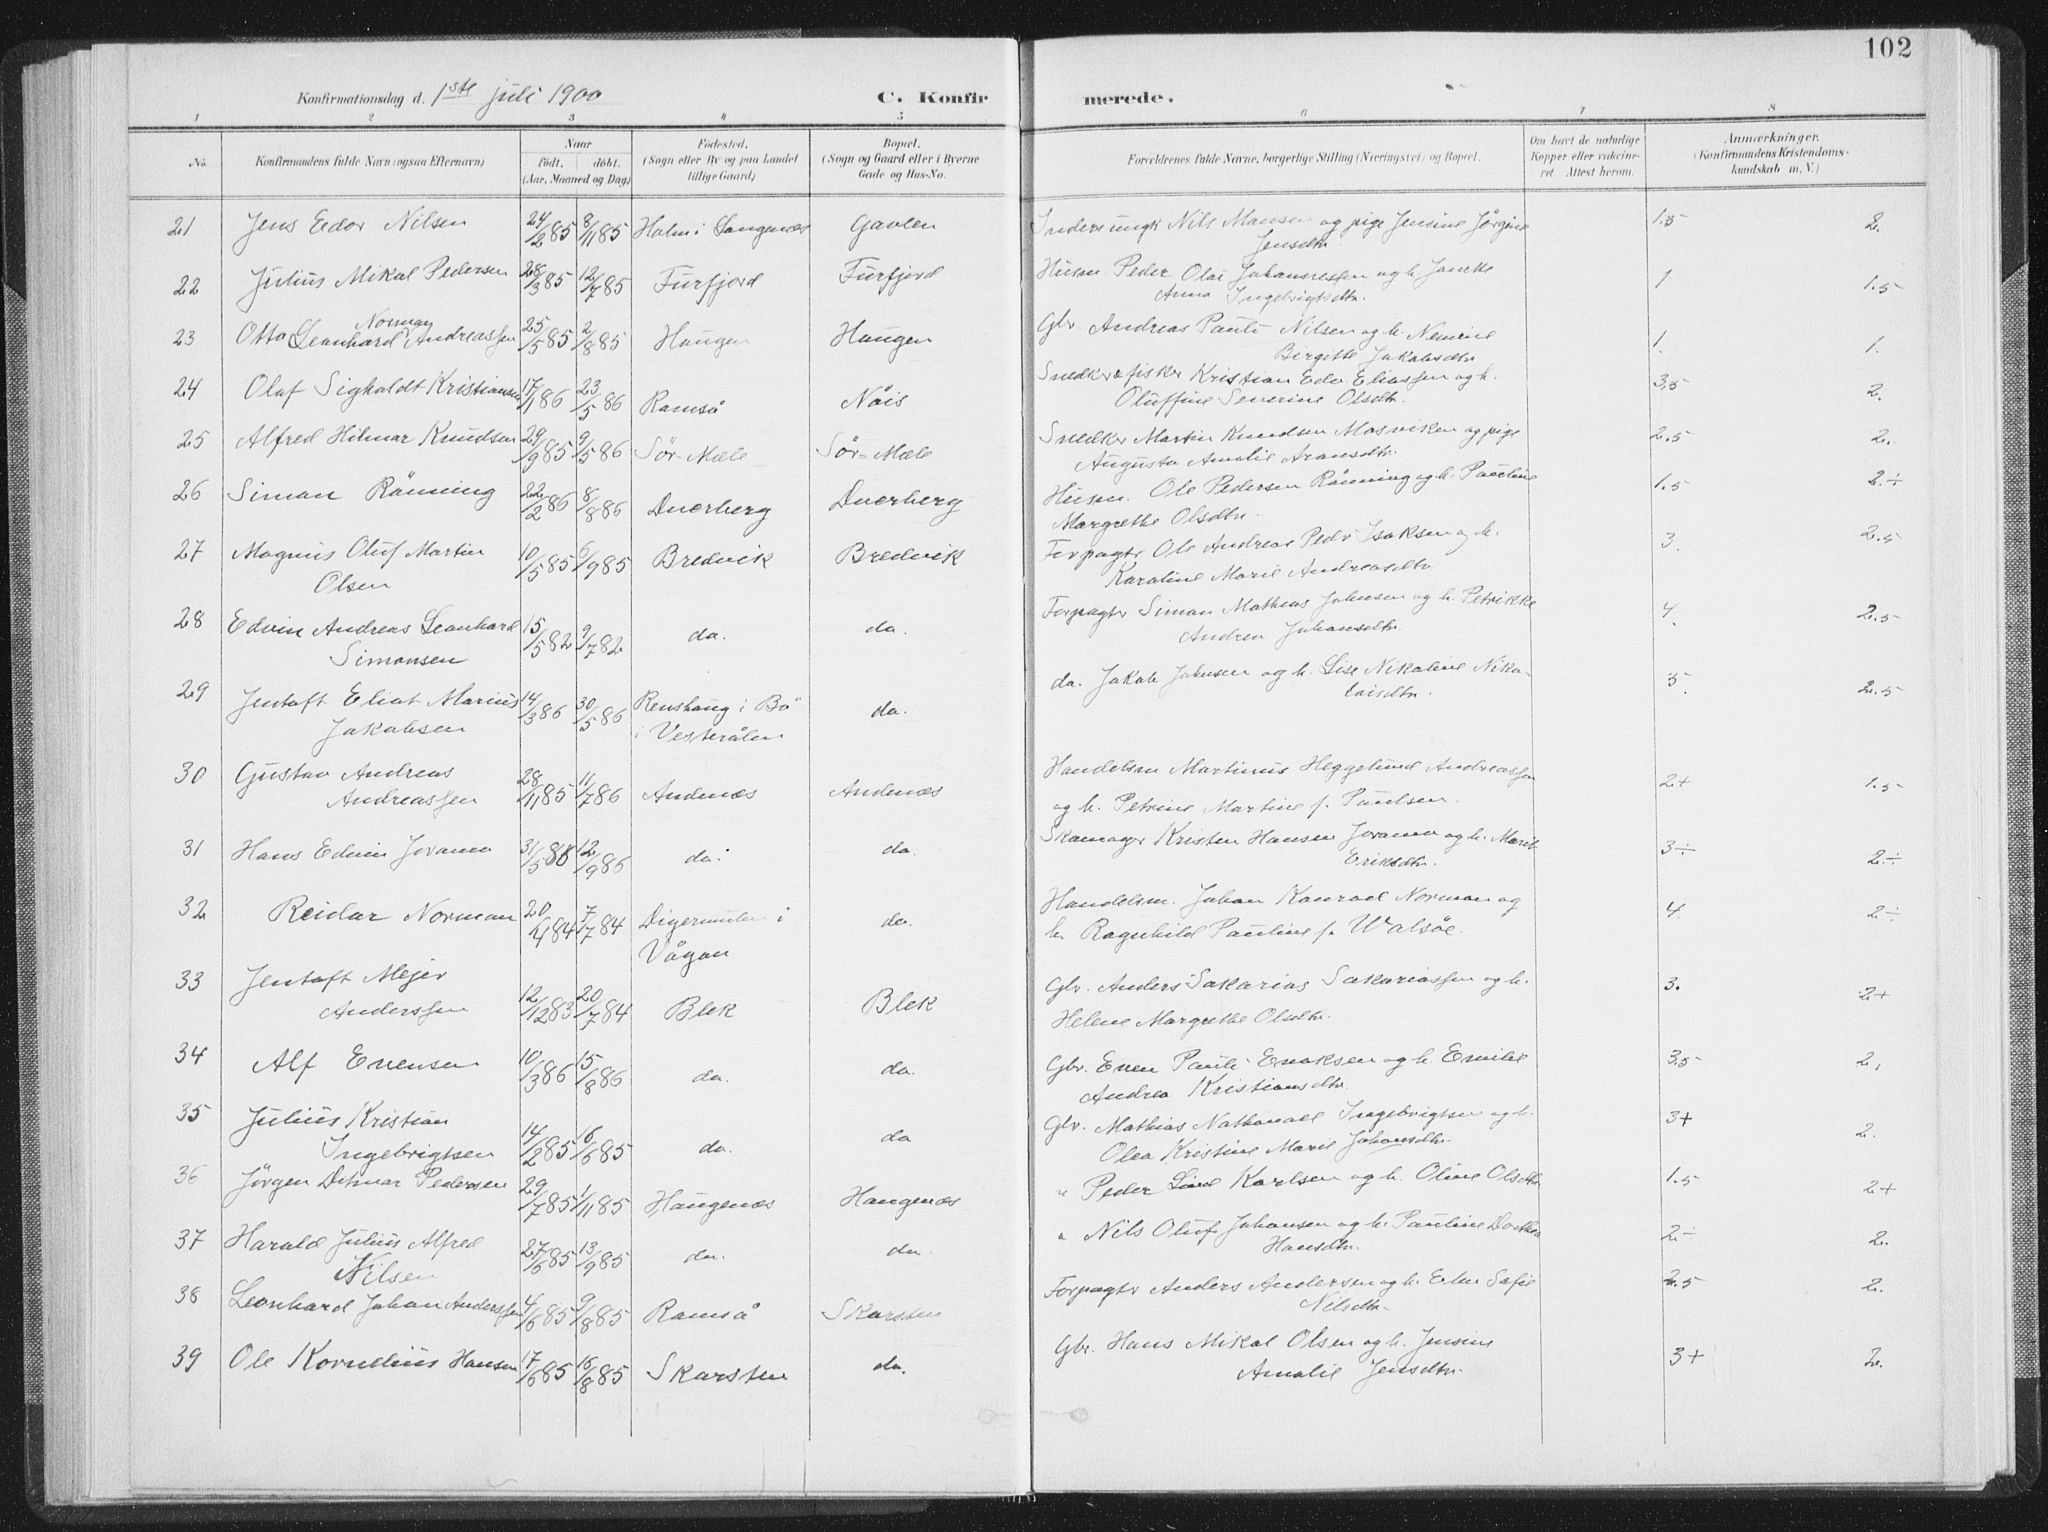 102
Konfirmationsdag d. 1ste juli 1900
C. Konfirmerede.
1 2 3 4 5 6 7 8
No. Konfirmandens fulde Navn (ogsaa Efternavn) Naar født. døbt. (Aar, Maaned og Dag) Fødested. (Sogn eller By og paa Landet tillige Gaard) Bopæl. (Sogn og Gaard eller i Byerne Gade og Hus-No. Forældrenes fulde Navne, borgerlige Stilling (Næringsvei) og Bopæl. Om havt de naturlige Kopper eller vakcineret. Attest herom. Anmærkninger. (Konfirmandens Kristendomskundskab m. V.)
21 Jens Edor Nilsen 24/2 85 8/11 85 Holm i Langenæs Gavlen Inders. ungk Nils Mansen og pige Jensine Jørgine 1.5 2.
Jensdtr.
22 Julius Mikal Pedersen 28/3 85 12/7 85 Furfjord Furfjord Husm. Peder Olai Johannessen og h. 1 1.5
Anna Ingebrigtsdtr.
Norman
23 Otto Leonhard Andreassen 25/5 85 2/8 85 Haugen Haugen Gbr. Andreas Pauli Nilsen og h. 1. 1.
Birgitte Jakobsdtr
24 Olaf Sigvaldt Kristiansen 17/1 86 23/5 86 Ramså Nöis Snedker & fisker Kristian Edv. Eliassen og h. 3,5 2.
Oluffine Severine Olsdtr.
25 Alfred Hilmar Knudsen 29/9 85 9/5 86 Sör-Mæle Sör-Mæle Snedker Martin Knudsen Masviken og pige 2.5 2.
Augusta Amalie Aronsdtr.
26 Simon Rönning 22/2 86 8/8 86 Dverberg Dverberg Husm. Ole Pedersen Rönning og h. Pauline 1.5 2.÷
Margrethe Olsdtr.
27 Magnus Oluf Martin 10/5 85 6/9 85 Bredvik Bredvik Forpagtr Ole Andreas Pedr Isaksen og h. 3. 2.5
Olsen Karoline Marie Andreasdtr.
28 Edvin Andreas Leonhard 15/5 82 9/7 82 do. do. Forpagtr Simon Mathias Johnsen og h. Petrikke 4. 2.5
Simonsen Andrea Johansdtr.
29 Jentoft Eliot Marius 14/3 86 30/5 86 Renshaug i Bö do. do. Jakob Johnsen og h. Lise Nikoline Niko- 3. 2.5
Jakobsen i Vesterålen laisdtr.
30 Gustav Andreas 28/11 85 11/7 86 Andenæs Andenæs Handelsm Martinus Heggelund Andreassen 2+ 1.5
Andreassen og h. Petrine Martine f. Paulsen.
31 Hans Edvin Joramo 31/5 86 12/9 86 do. do. Skomager Kristen Hansen Joramo og h. Marit 3÷ 2.÷
Eriksdtr.
32 Reidar Norman 20/4 84 7/7 84 Digermulen i do. Handelsm. Johan Konrad Norman og 4. 2÷
Vågan h. Ragnhild Pauline f. Walsöe.
33 Jentoft Mejer 12/12 83 20/7 84 Blek Blek Gbr. Anders Sakarias Sakariassen og h. 3. 2+
Anderssen Helene Margrethe Olsdtr.
34 Alf Evensen 10/3 86 15/8 86 do. do. Gbr. Even Pauli Enoksen og h. Emilie 3.5 2.
Andrea Kristiansdtr.
35 Julius Kristian 14/2 85 16/6 85 do. do Gbr. Mathias Nathanael Ingebrigtsen og h. 3+ 2.
Ingebrigtsen Olea Kristine Marie Johansdtr.
36 Jörgen Ditmar Pedersen 29/7 85 1/11 85 Haugenæs Haugenæs " Peder Karlsen og h. Oline Olsdtr 1.5 2+
37 Harald Julius Alfred 27/6 85 13/9 85 do. do. " Nils Oluf Johansen og h. Pauline Dorthea 2÷ 2.
Nilsen Hansdtr.
38 Leonhard Johan Anderssen 4/6 85 9/8 85 Ramså Skarsten Forpagtr Anders Andersen og h. Elen Sofie 2.5 2.
Nilsdtr.
39 Ole Kornelius Hansen 17/6 85 16/8 85 Skarsten do. Gbr. Hans Mikal Olsen og h. Jensine 3+ 2.
Amalie Jensdtr.